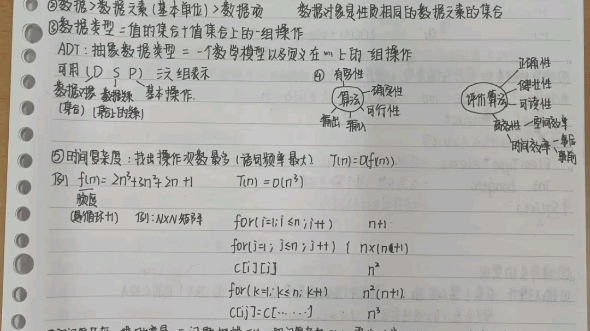 ②数据>数据元素(基本单位)>数据项 数据对象是性质相同的数据元素的集合
③数据类型=值的集合+值集合上的一组操作
ADT:抽象数据类型=一个数学模型以及定义在 上的一组操作
可用(D S P)三元组表示
数据对象 数据关系 基本操作
(集合) (集合上的关系)
④
有穷性
算法
确定性
可行性
输出 输入
评价算法
正确性
健壮性
可读性
高效性
空间效率
时间效率
事后
事前
⑤时间复杂度:找出操作次数最多(语句频率最大) T(n)=O(f(n))
例 f(n)=2n³+3n²+2n+1 T(n)=O(n³)
频度
(最循环+1) 例:N×N矩阵
for(i=1;i≤n;i++) n+1
for(j=1;j≤n;j++){ n×(n+1)
C[i][j] n²
for(k=1;k≤n;k++) n²(n+1)
C[ij]=C[……] n³